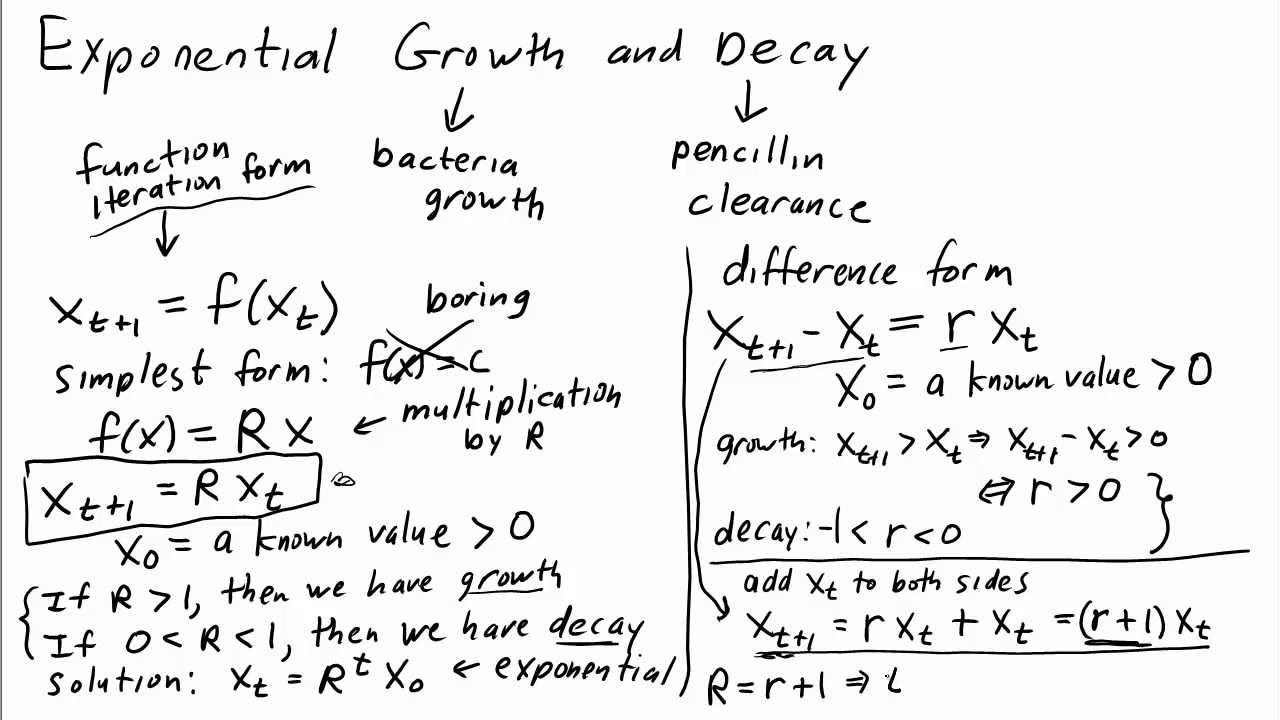 Exponential Growth and Decay
function
iteration form
bacteria
growth
pencillin
clearance
x_{t+1} = f(x_t)
boring
simplest form: f(x) = c
f(x) = R x
← multiplication
by R
x_{t+1} = R x_t
x_0 = a known value > 0
If R > 1, then we have growth
If 0 < R < 1, then we have decay
solution: x_t = R^t x_0 ← exponential
difference form
x_{t+1} - x_t = r x_t
x_0 = a known value > 0
growth: x_{t+1} > x_t ⇒ x_{t+1} - x_t > 0
⇔ r > 0
decay: -1 < r < 0
add x_t to both sides
x_{t+1} = r x_t + x_t = (r+1) x_t
R = r+1 ⇒